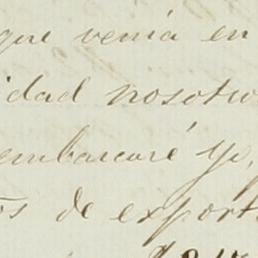 que venia en
idad nosotro
embarcaré yo,
os de export